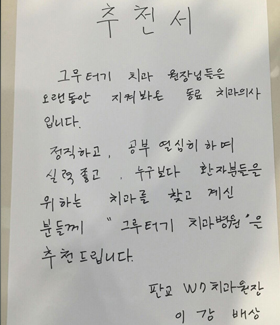 추천서
그루터기 치과 원장님들은
오랜동안 지켜봐온 동료 치과의사
입니다.
정직하고, 공부 열심히 하며
실력 좋고, 누구보다 환자분들을
위하는 치과를 찾고 계신
분들께 "그루터기 치과병원"은
추천드립니다.
판교 W7 치과원장
이 강 배상